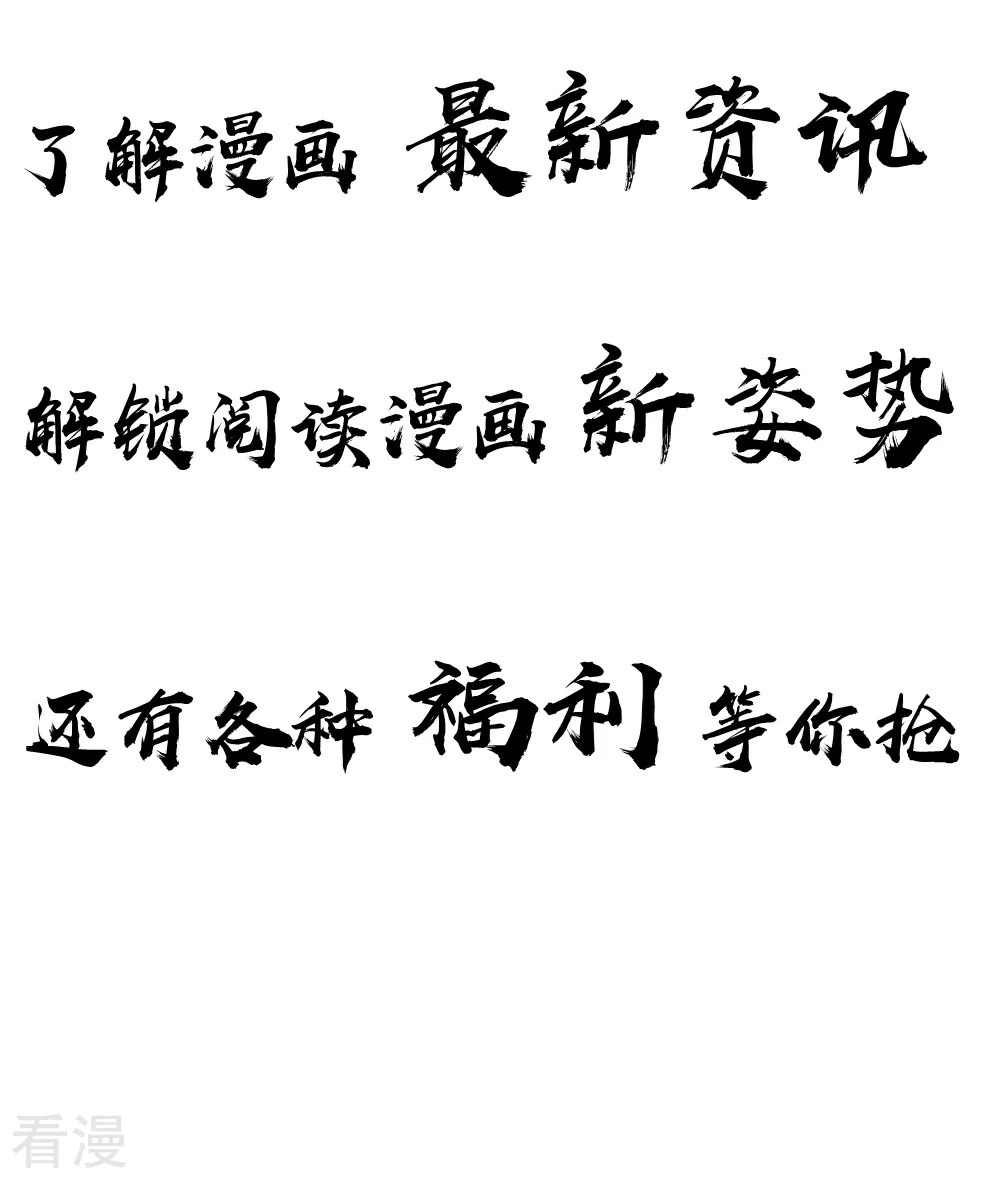 了解漫画 最新资讯
解锁阅读漫画新姿势
还有各种 福利 等你抢
看漫